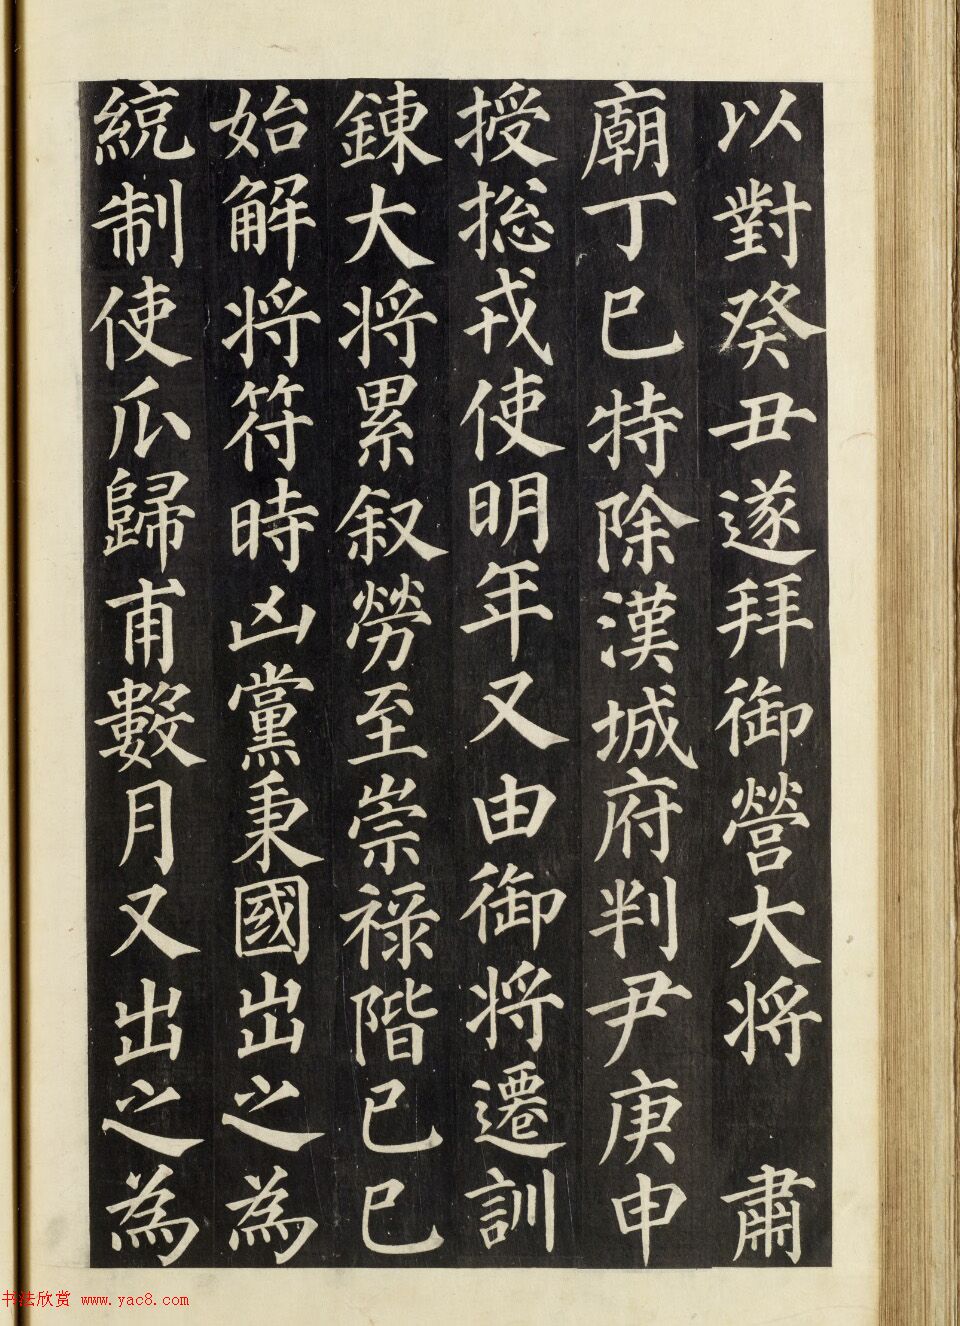 以對癸丑遂拜御營大將　肅
廟丁巳特除漢城府判尹庚申
授摠戎使明年又由御將遷訓
鍊大將累叙勞至崇祿階己巳
始解將符時凶黨秉國出之為
統制使瓜歸甫數月又出之為
书法欣赏 www.yac8.com